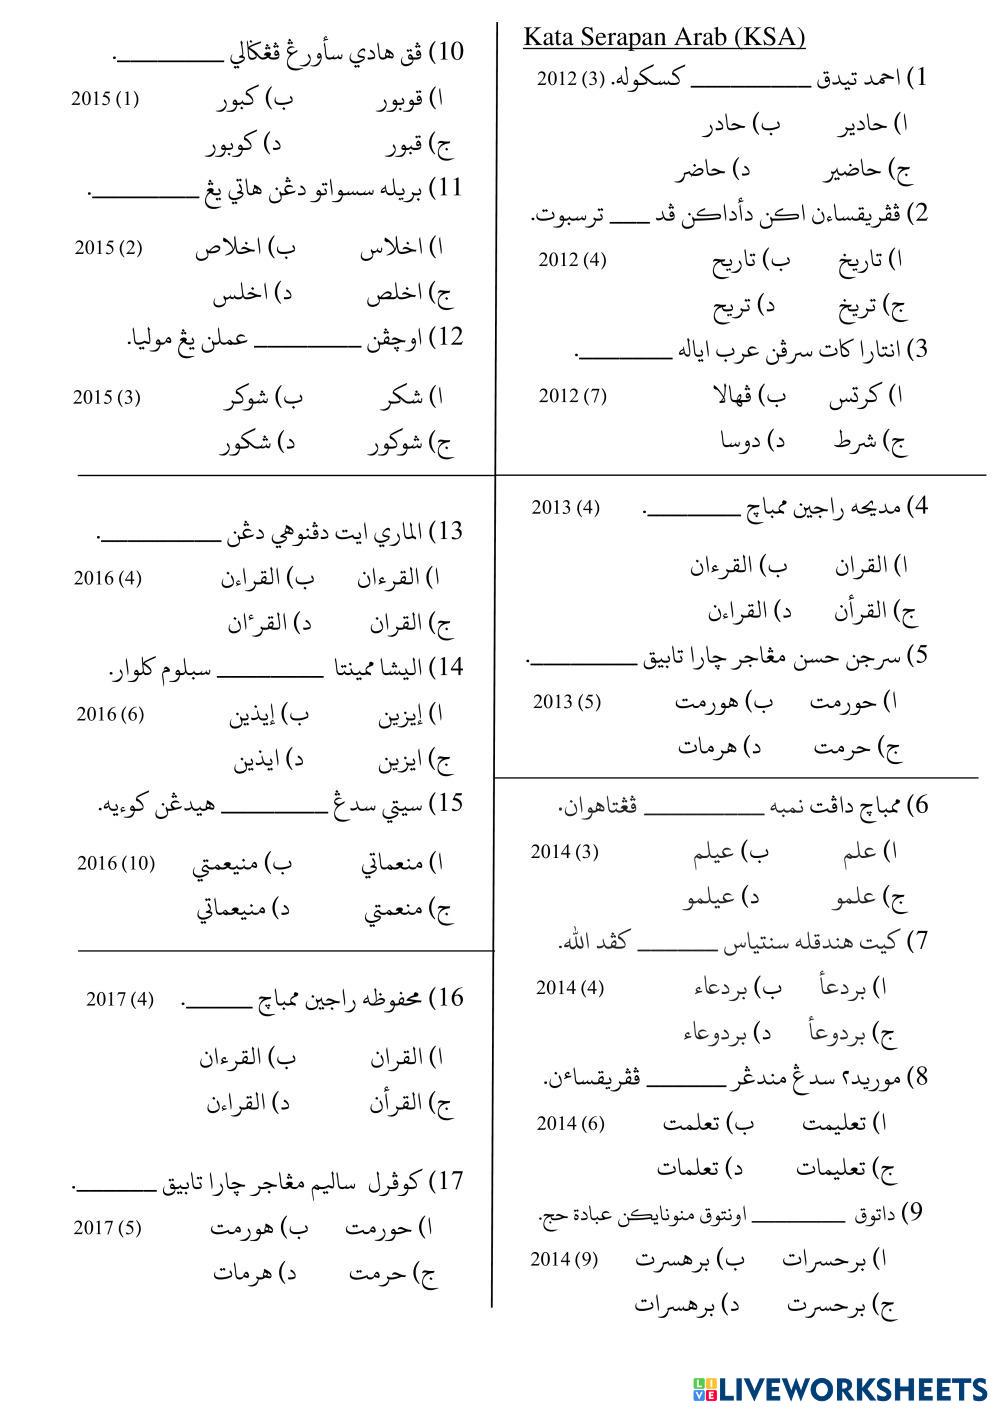 Kata Serapan Arab (KSA)
1) احمد تيدق __________ كسكوله. 2012 (3)
ا) حادير ب) حادر
ج) حاضير د) حاضر
2) ڤڤريقساءن اكن دأداكن ڤد ____ ترسبوت.
ا) تاريخ ب) تاريح 2012 (4)
ج) تريخ د) تريح
3) انتارا كات سرڤن عرب اياله ________.
ا) كرتس ب) ڤهالا 2012 (7)
ج) شرط د) دوسا
4) مديحه راجين ممباچ ________. 2013 (4)
ا) القران ب) القرءان
ج) القرأن د) القراءن
5) سرجن حسن مڠاجر چارا تابيق _________.
ا) حورمت ب) هورمت 2013 (5)
ج) حرمت د) هرمات
6) ممباچ داڤت نمبه __________ ڤڠتاهوان.
ا) علم ب) عيلم 2014 (3)
ج) علمو د) عيلمو
7) كيت هندقله سنتياس _______ كڤد الله.
ا) بردعأ ب) بردعاء 2014 (4)
ج) بردوعأ د) بردوعاء
8) موريد٢ سدڠ مندڠر _______ ڤڤريقساٴن.
ا) تعليمت ب) تعلمت 2014 (6)
ج) تعليمات د) تعلمات
9) داتوق ________ اونتوق منونايكن عبادة حج.
ا) برحسرات ب) برهسرت 2014 (9)
ج) برحسرت د) برهسرات
10) ڤق هادي سأورڠ ڤڠݢالي _________.
ا) قوبور ب) كبور 2015 (1)
ج) قبور د) كوبور
11) بريله سسواتو دڠن هاتي يڠ _________.
ا) اخلاس ب) اخلاص 2015 (2)
ج) اخلص د) اخلس
12) اوچڤن _________ عملن يڠ موليا.
ا) شكر ب) شوكر 2015 (3)
ج) شوكور د) شكور
13) الماري ايت دڤنوهي دڠن __________.
ا) القرءان ب) القراءن 2016 (4)
ج) القران د) القرٴان
14) اليشا ممينتا _________ سبلوم كلوار.
ا) إيزين ب) إيذين 2016 (6)
ج) ايزين د) ايذين
15) سيتي سدڠ _________ هيدڠن كوءيه.
ا) منعماتي ب) منيعمتي 2016 (10)
ج) منعمتي د) منيعماتي
16) محفوظه راجين ممباچ ______. 2017 (4)
ا) القران ب) القرءان
ج) القرأن د) القراءن
17) كوڤرل ساليم مڠاجر چارا تابيق _______.
ا) حورمت ب) هورمت 2017 (5)
ج) حرمت د) هرمات
LIVE LIVEWORKSHEETS